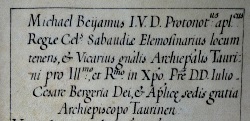 Michael Beyamus I.V.D. Protonot.us apl.cus
Regiæ Cels. Sabaudiæ Elemosinarius locum
tenens, et Vicarius gnālis Archiepālis Tauri
ni pro Ill.mo, et R.mo in Xpo, Pre DD. Iulio
Cesare Bergeria Dei, et Aplicæ sedis gratia
Archiepiscopo Taurinen